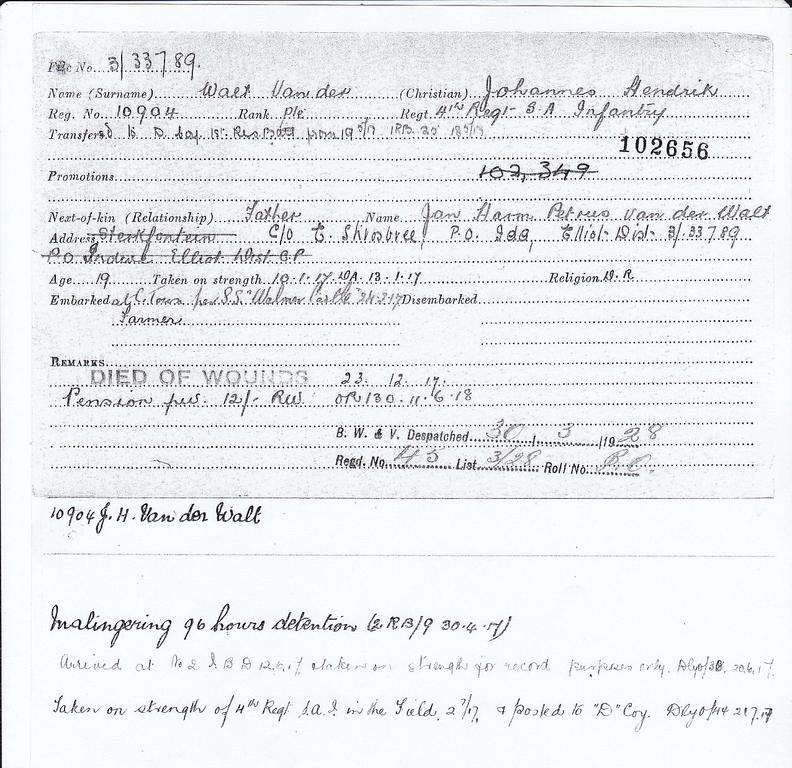 File No. 3/33789.
Name (Surname) Walt Van der (Christian) Johannes Hendrik
Reg. No. 10904 Rank Pte Regt. 4th Regt S A Infantry
Transfers to D Coy 1st Res Batt from
102656
Promotions 102,349
Next-of-kin (Relationship) Father Name Jan Harm Petrus Van der Walt
Address Sterkfontein C/o E. Shrosbree, P.O. Ida, Elliot Dist 3/33789
P.O. Indwe Elliot Dist C.P.
Age 19 Taken on strength 10.1.17. 13.1.17 Religion D.R.
Embarked at C. Town per S.S. "Walmer Castle" 24.2.17 Disembarked
Farmer
REMARKS
DIED OF WOUNDS 23. 12. 17.
Pension pw. 12/- RW OR 130. 11.6.18
B. W. & V. Despatched 30/3/1928
Regd. No. 45 List 3/28 Roll No.
10904 J. H. Van der Walt
Malingering 96 hours detention (2 RB/9 30.4.17)
Arrived at No 2 I B D 12.6.17 taken on strength for record purposes only. Dlyo/38. 20.6.17.
Taken on strength of 4th Regt S.A.I. in the Field & posted to "D" Coy. Dlyo/44 21.7.17